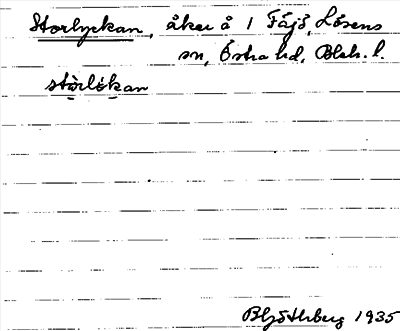 Storlyckan, åker å 1 Fäjö, Lösens
sn, Östra hd, Blek. l.
störlökan
1935